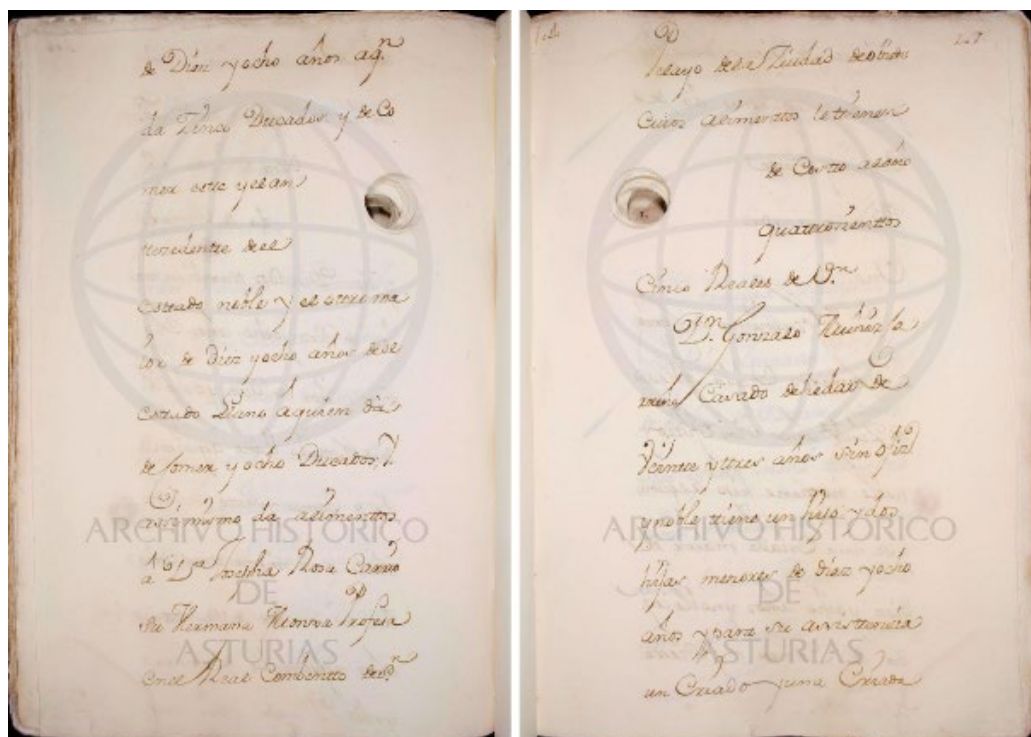 de Diez y ocho años a q.n
da Zinco Ducados y de Co
mer este y el an
tezedente de el
estado noble y el otro me
nor de Diez y ocho años de el
estado Llano a quien da
de Comer y ocho Ducados, Y
assimismo da alimenttos
a D.a Rosa
su Hermana Monxa Profesa
en el Real Combentto de S.n
Pelayo de la Ziudad de Obiedo
Cuios alimenttos le thienen
de Costto
quatrozienttos
Cinco Reales de V.n
D.n Gonzalo
Casado de hedad de
Veintte y tres años sin ofizio
y noble tiene un hijo y dos
hijas menores de diez y ocho
años y para su assistencia
un Criado y una Criada
ARCHIVO HISTÓRICO
DE
ASTURIAS
ARCHIVO HISTÓRICO
DE
ASTURIAS